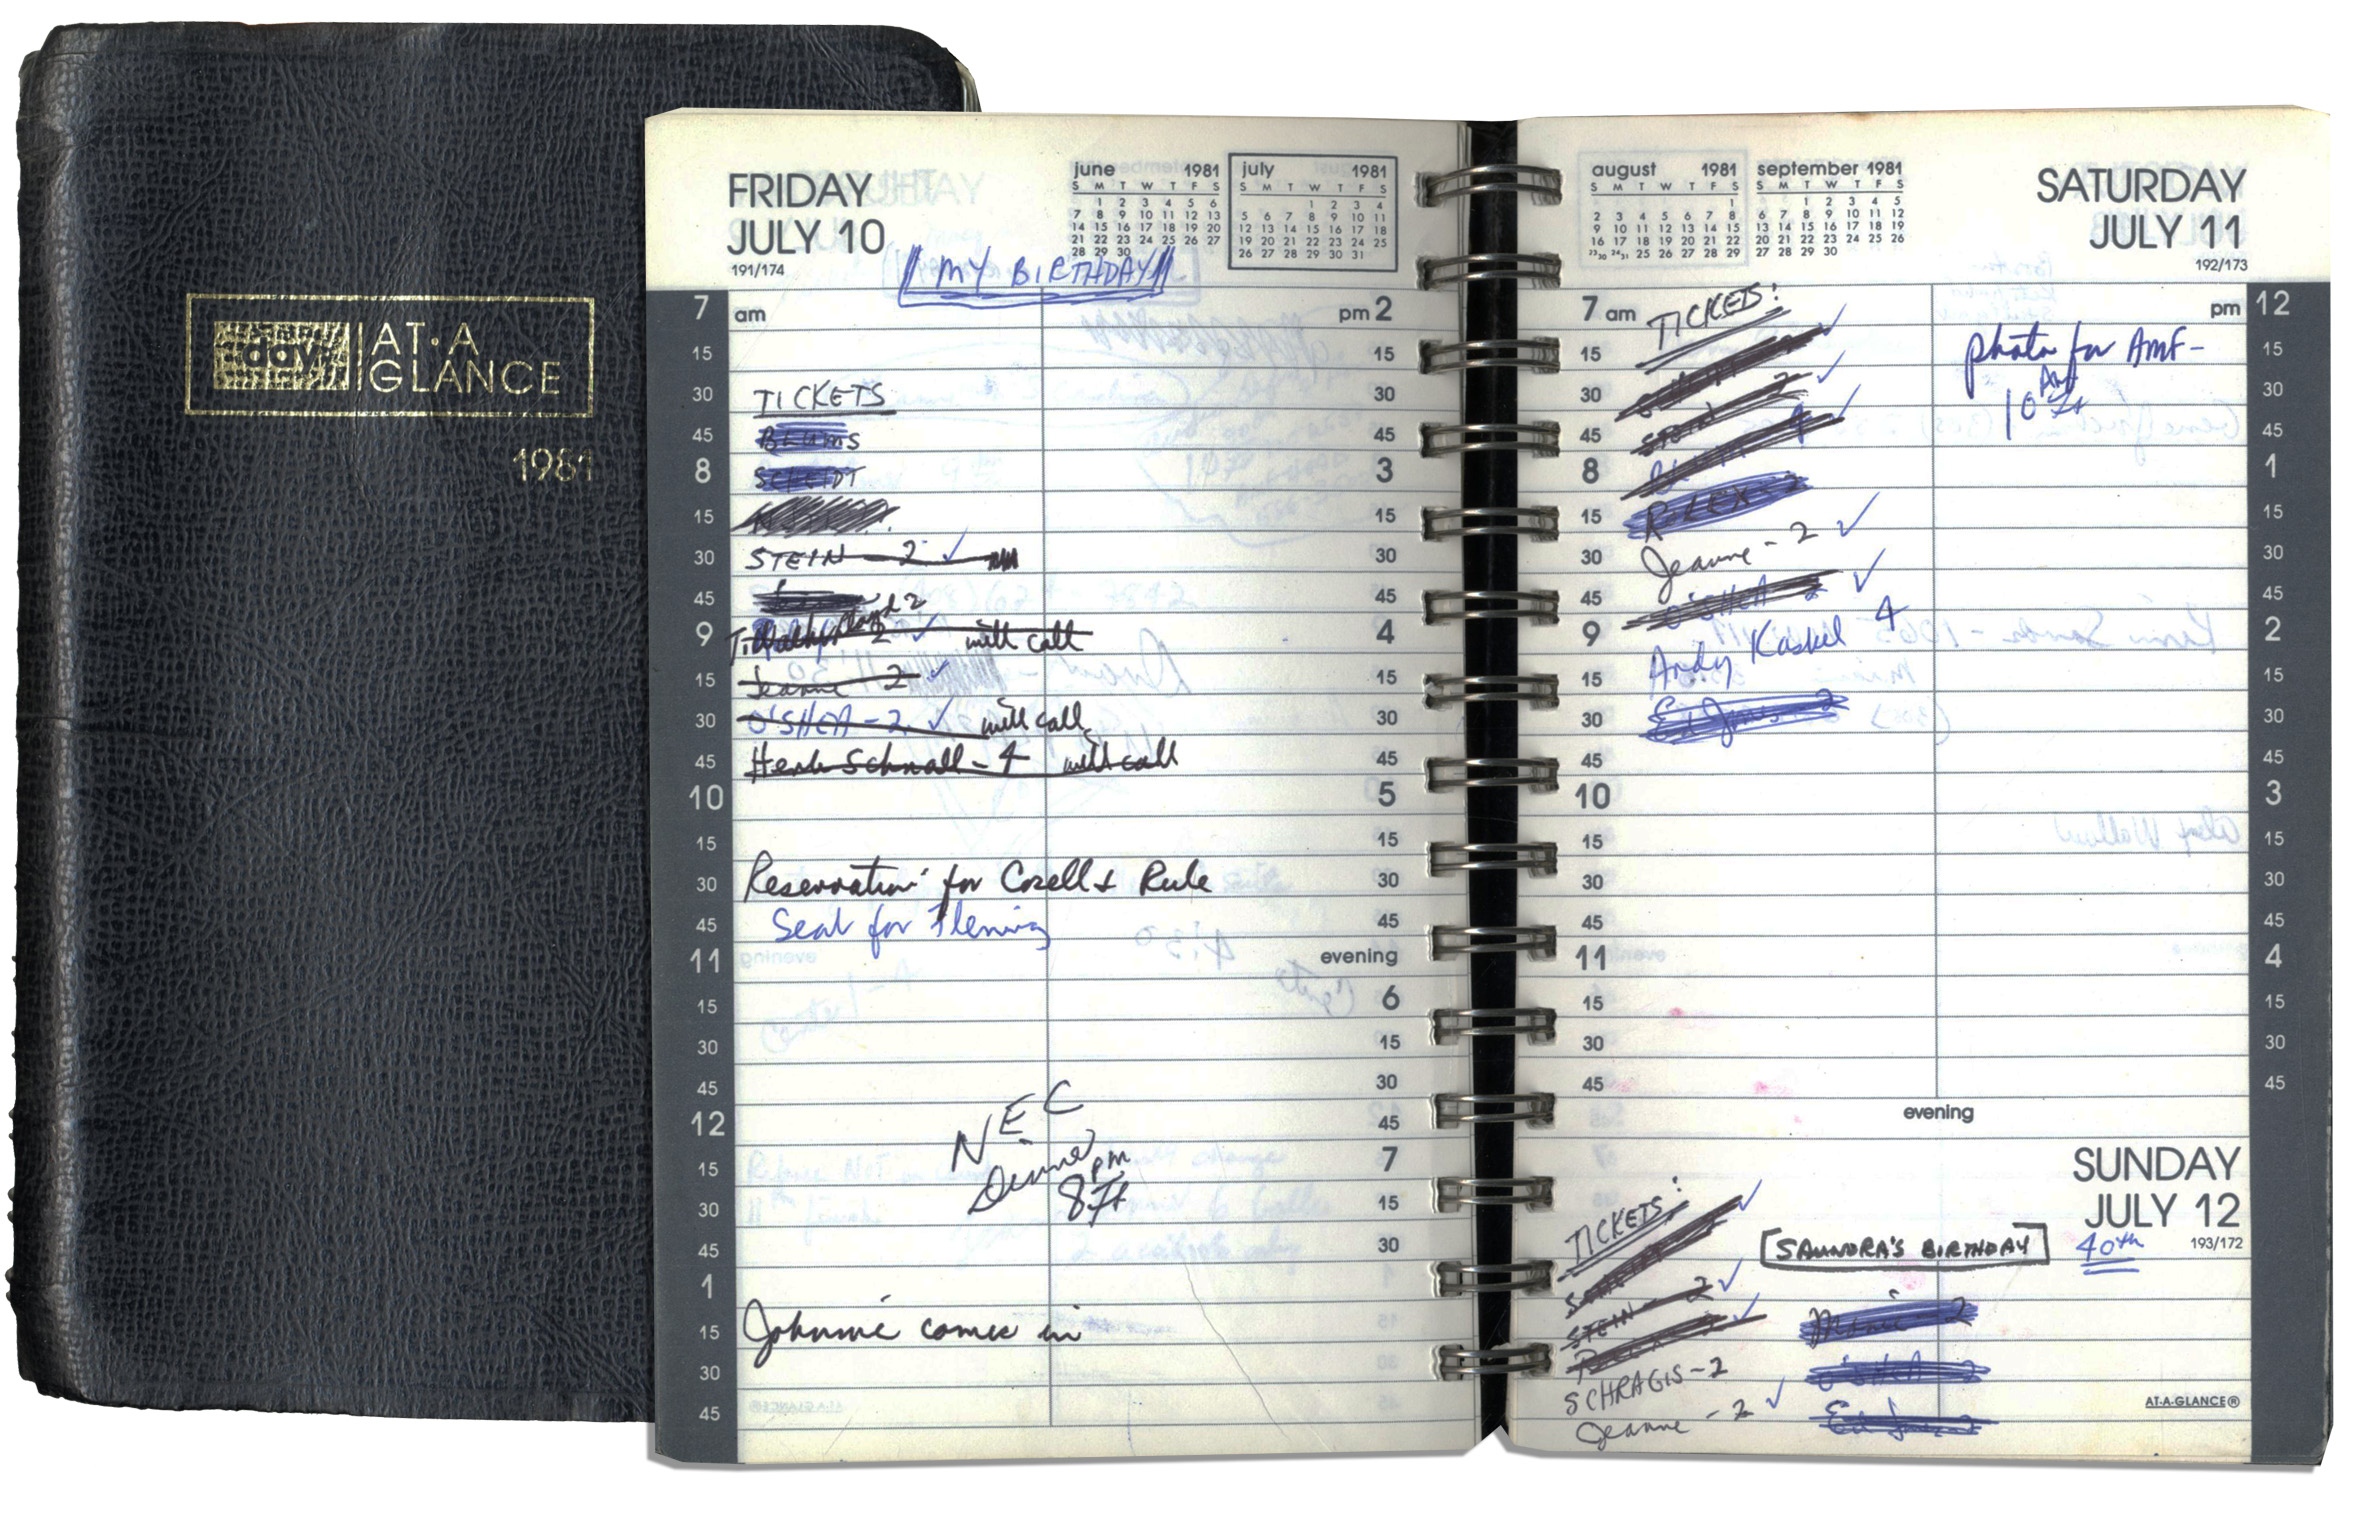 day AT·A
GLANCE
1981
FRIDAY
JULY 10
191/174
june 1981
S M T W T F S
1 2 3 4 5 6
7 8 9 10 11 12 13
14 15 16 17 18 19 20
21 22 23 24 25 26 27
28 29 30
july 1981
S M T W T F S
1 2 3 4
5 6 7 8 9 10 11
12 13 14 15 16 17 18
19 20 21 22 23 24 25
26 27 28 29 30 31
MY BIRTHDAY
7 am pm 2
15 15
30 TICKETS 30
45 BLUMS 45
8 SCHEIDT 3
15 15
30 STEIN - 2 ✓ 30
45 2 45
9 2 ✓ will call 4
15 Jeanne 2 ✓ 15
30 O'SHEA - 2 ✓ will call 30
45 Herb Schnall - 4 will call 45
10 5
15 15
30 Reservation for Cosell & Rule 30
45 Seat for Fleming 45
11 evening
15 6
30 15
45 NEC 30
12 Dinner 45
15 8 pm 7
30 15
45 30
1
15 Johnnie comes in
30
45
august 1981
S M T W T F S
1
2 3 4 5 6 7 8
9 10 11 12 13 14 15
16 17 18 19 20 21 22
23 30 24 31 25 26 27 28 29
september 1981
S M T W T F S
1 2 3 4 5
6 7 8 9 10 11 12
13 14 15 16 17 18 19
20 21 22 23 24 25 26
27 28 29 30
SATURDAY
JULY 11
192/173
7 am TICKETS: pm 12
15 ✓ photo for AMF- 15
30 STEIN 2 ✓ 10 AM 30
45 4 ✓ 45
8 ROLEX - 2 1
15 15
30 Jeanne - 2 ✓ 30
45 O'SHEA 2 ✓ 45
9 Andy Kaskel 4 2
15 15
30 Ed Jones 2 30
45 45
10 3
15 15
30 30
45 45
11 4
15 15
30 30
45 45
evening
SUNDAY
JULY 12
193/172
40th
SAUNDRA'S BIRTHDAY
TICKETS:
✓
STEIN - 2 ✓
✓
SCHRAGIS - 2
Jeanne - 2 ✓
2
O'SHEA 2
Ed Jones 2
AT-A-GLANCE®